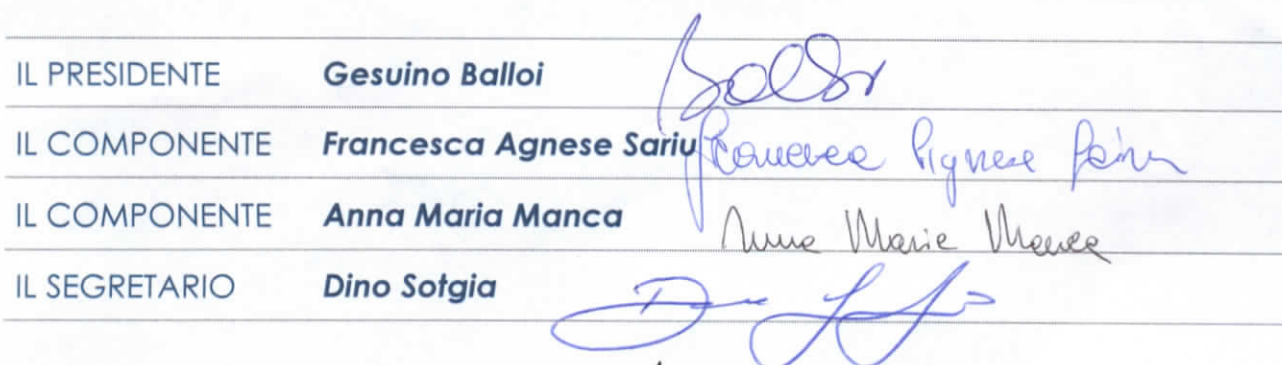 IL PRESIDENTE Gesuino Balloi Balloi
IL COMPONENTE Francesca Agnese Sariu Francesca Agnese Sariu
IL COMPONENTE Anna Maria Manca Anna Maria Manca
IL SEGRETARIO Dino Sotgia